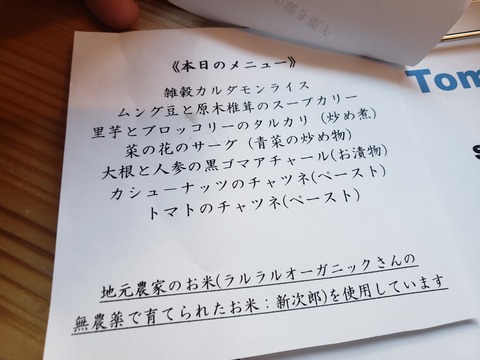 《本日のメニュー》
雑穀カルダモンライス
ムング豆と原木椎茸のスープカリー
里芋とブロッコリーのタルカリ（炒め煮）
菜の花のサーグ（青菜の炒め物）
大根と人参の黒ゴマアチャール(お漬物)
カシューナッツのチャツネ(ペースト)
トマトのチャツネ(ペースト)
地元農家のお米(ラルラルオーガニックさんの
無農薬で育てられたお米：新次郎)を使用しています
Tom